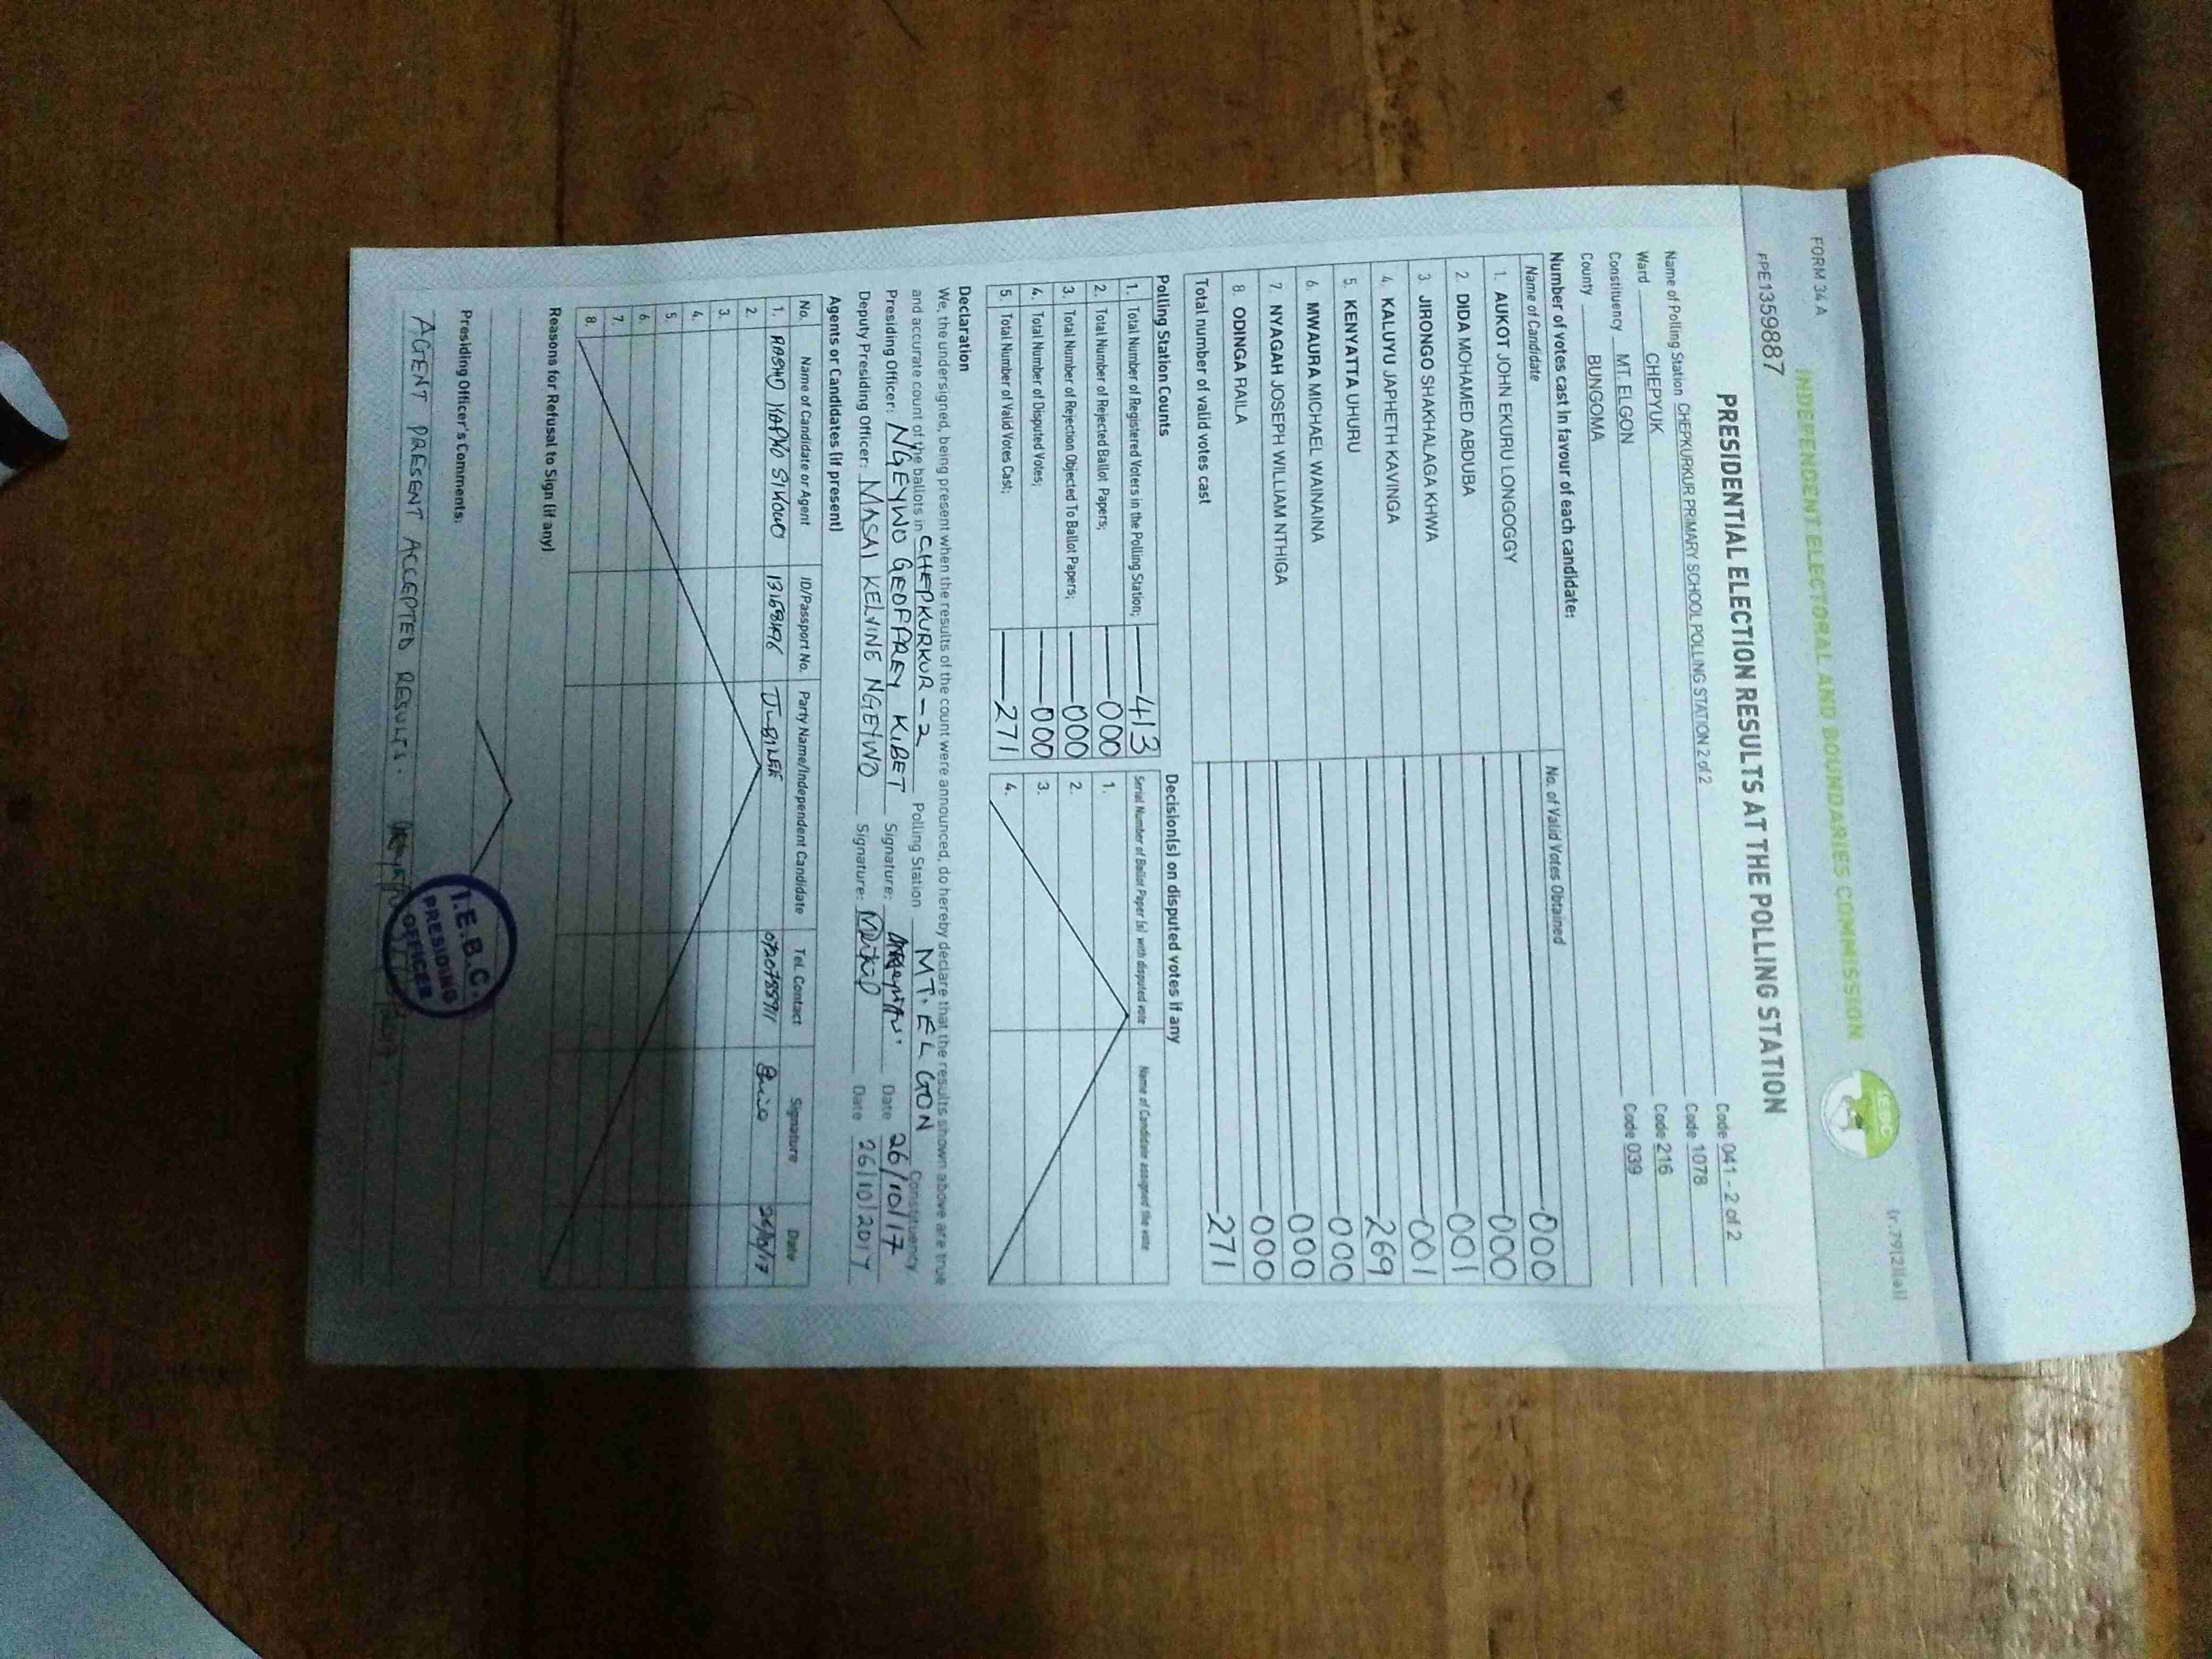 FORM 34 A
(r.79(2)(a))
INDEPENDENT ELECTORAL AND BOUNDARIES COMMISSION
IEBC
PPE1359887
PRESIDENTIAL ELECTION RESULTS AT THE POLLING STATION
Name of Polling Station CHEPKURKUR PRIMARY SCHOOL POLLING STATION 2 of 2 Code 041 - 2 of 2
Ward CHEPYUK Code 1078
Constituency MT. ELGON Code 216
County BUNGOMA Code 039
Number of votes cast in favour of each candidate:
Name of Candidate No. of Valid Votes Obtained
1. AUKOT JOHN EKURU LONGOGGY 000
2. DIDA MOHAMED ABDUBA 000
3. JIRONGO SHAKHALAGA KHWA 001
4. KALUYU JAPHETH KAVINGA 001
5. KENYATTA UHURU 269
6. MWAURA MICHAEL WAINAINA 000
7. NYAGAH JOSEPH WILLIAM NTHIGA 000
8. ODINGA RAILA 000
Total number of valid votes cast 271
Polling Station Counts
1. Total Number of Registered Voters in the Polling Station; 413
2. Total Number of Rejected Ballot Papers; 000
3. Total Number of Rejection Objected To Ballot Papers; 000
4. Total Number of Disputed Votes; 000
5. Total Number of Valid Votes Cast; 271
Decision(s) on disputed votes if any
Serial Number of Ballot Paper (s) with disputed vote Name of Candidate assigned the vote
1.
2.
3.
4.
Declaration
We, the undersigned, being present when the results of the count were announced, do hereby declare that the results shown above are true
and accurate count of the ballots in CHEPKURKUR - 2 Polling Station MT. ELGON Constituency
Presiding Officer: NGEYWO GEOFFREY KIBET Signature: Date 26/10/17
Deputy Presiding Officer: MASAI KELVINE NGEYWO Signature: Date 26/10/2017
Agents or Candidates (if present)
No. Name of Candidate or Agent ID/Passport No. Party Name/Independent Candidate Tel. Contact Signature Date
1. JUBILEE 26/10/17
2.
3.
4.
5.
6.
7.
8.
Reasons for Refusal to Sign (if any)
Presiding Officer's Comments:
AGENT PRESENT ACCEPTED RESULTS.
I.E.B.C.
PRESIDING
OFFICER